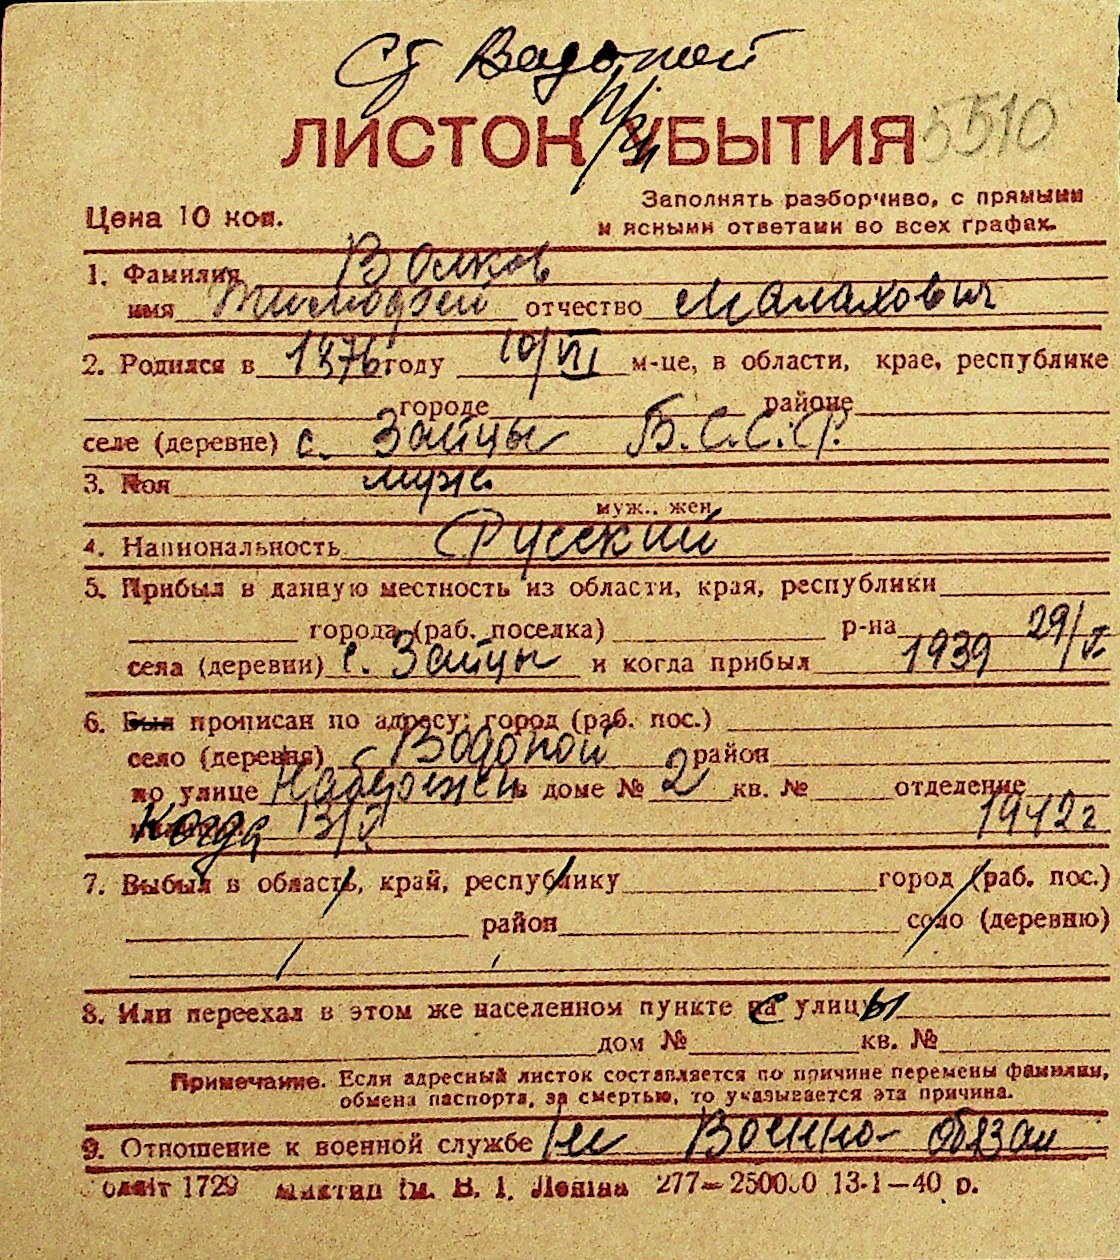 Ст Водопой
ЛИСТОК УБЫТИЯ 5510
Цена 10 коп.
Заполнять разборчиво, с прямыми
и ясными ответами во всех графах.
1. Фамилия Волков
имя Тимофей отчество Малахович
2. Родился в 1876 году 10/VII м-це, в области, крае, республике
городе районе
селе (деревне) с. Зайцы Б.С.С.Р.
3. Пол муж.
муж., жен.
4. Национальность Русский
5. Прибыл в данную местность из области, края, республики
города (раб. поселка) р-на 29/V
села (деревни) с. Зайцы и когда прибыл 1939
6. Был прописан по адресу: город (раб. пос.)
село (деревня) с Водопой район
по улице Набережн в доме № 2 кв. № отделение
Когда 13/I 1942 г
7. Выбыл в область, край, республику город (раб. пос.)
район село (деревню)
8. Или переехал в этом же населенном пункте с улицы
дом № кв. №
Примечание. Если адресный листок составляется по причине перемены фамилии,
обмена паспорта, за смертью, то указывается эта причина.
9. Отношение к военной службе не Военно-обязан
1729 ім. В. І. Леніна 277—250000 13-1—40 р.